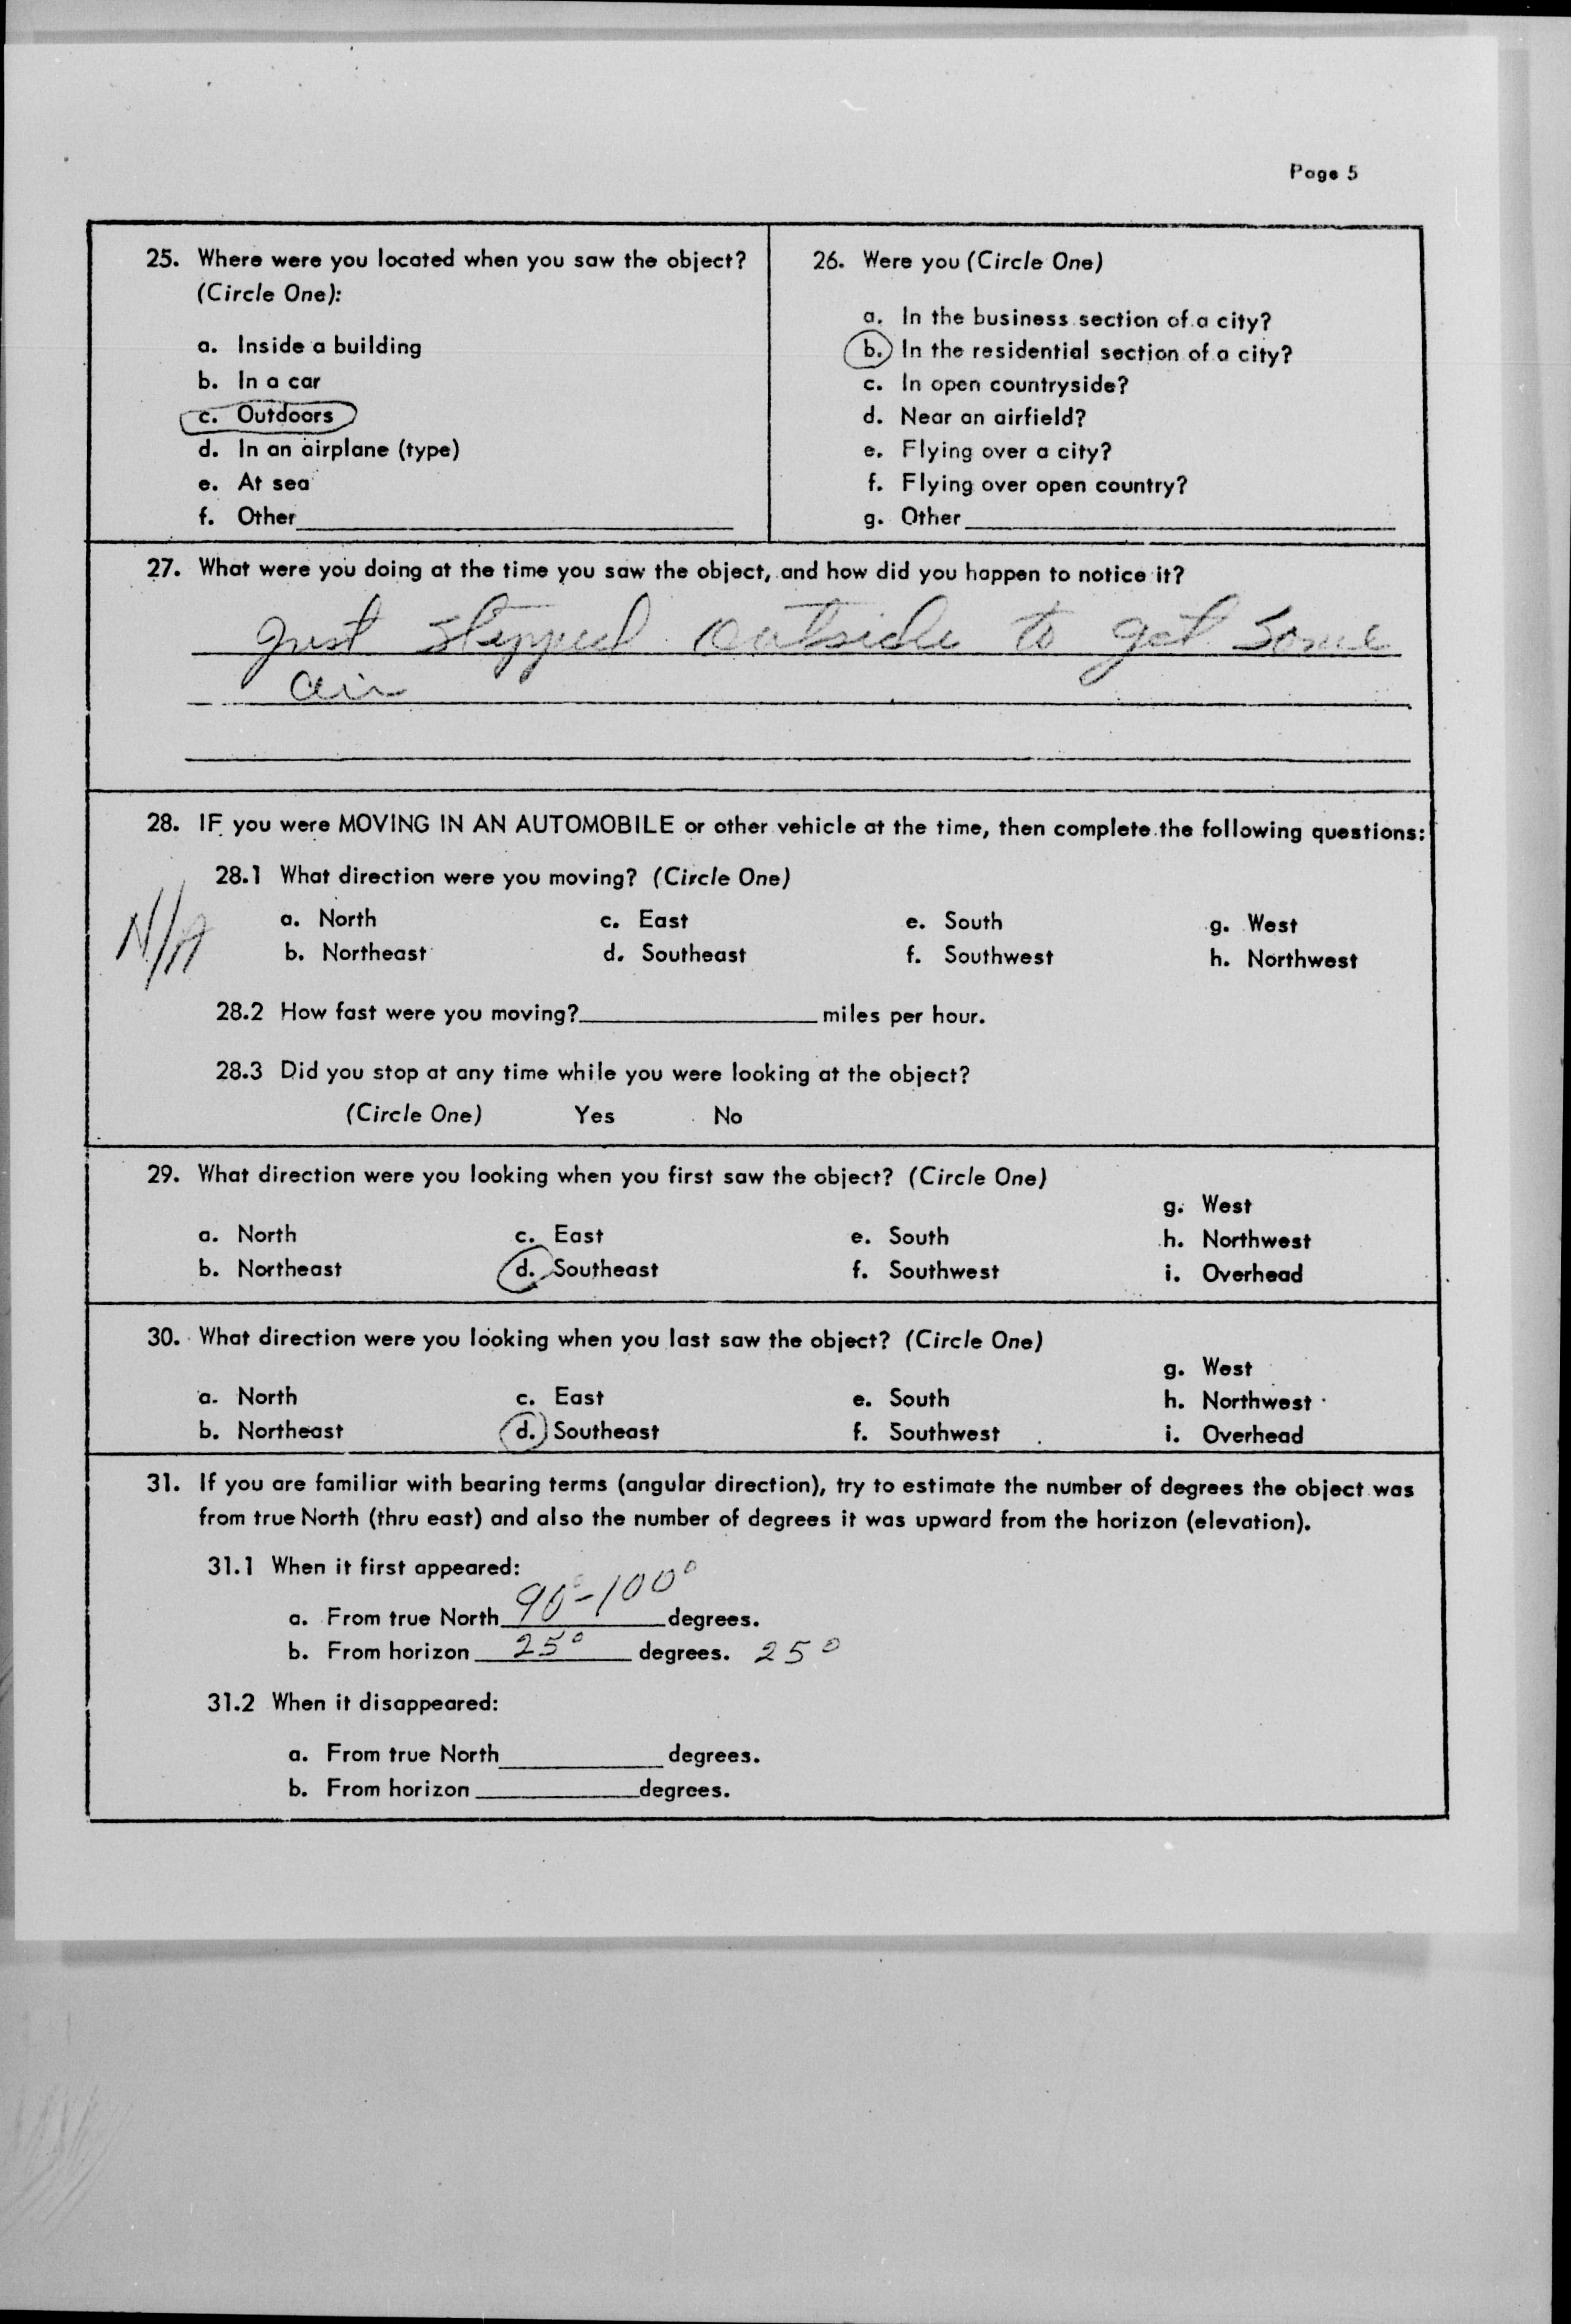 Page 5
25. Where were you located when you saw the object?
(Circle One):
a. Inside a building
b. In a car
c. Outdoors
d. In an airplane (type)
e. At sea
f. Other
26. Were you (Circle One)
a. In the business section of a city?
b. In the residential section of a city?
c. In open countryside?
d. Near an airfield?
e. Flying over a city?
f. Flying over open country?
g. Other
27. What were you doing at the time you saw the object, and how did you happen to notice it?
Just stepped outside to get some
air
28. IF you were MOVING IN AN AUTOMOBILE or other vehicle at the time, then complete the following questions:
28.1 What direction were you moving? (Circle One)
N/A
a. North c. East e. South g. West
b. Northeast d. Southeast f. Southwest h. Northwest
28.2 How fast were you moving? miles per hour.
28.3 Did you stop at any time while you were looking at the object?
(Circle One) Yes No
29. What direction were you looking when you first saw the object? (Circle One)
g. West
a. North c. East e. South h. Northwest
b. Northeast d. Southeast f. Southwest i. Overhead
30. What direction were you looking when you last saw the object? (Circle One)
g. West
a. North c. East e. South h. Northwest
b. Northeast d. Southeast f. Southwest i. Overhead
31. If you are familiar with bearing terms (angular direction), try to estimate the number of degrees the object was
from true North (thru east) and also the number of degrees it was upward from the horizon (elevation).
31.1 When it first appeared:
a. From true North 90°-100° degrees.
b. From horizon 25° degrees. 25°
31.2 When it disappeared:
a. From true North degrees.
b. From horizon degrees.